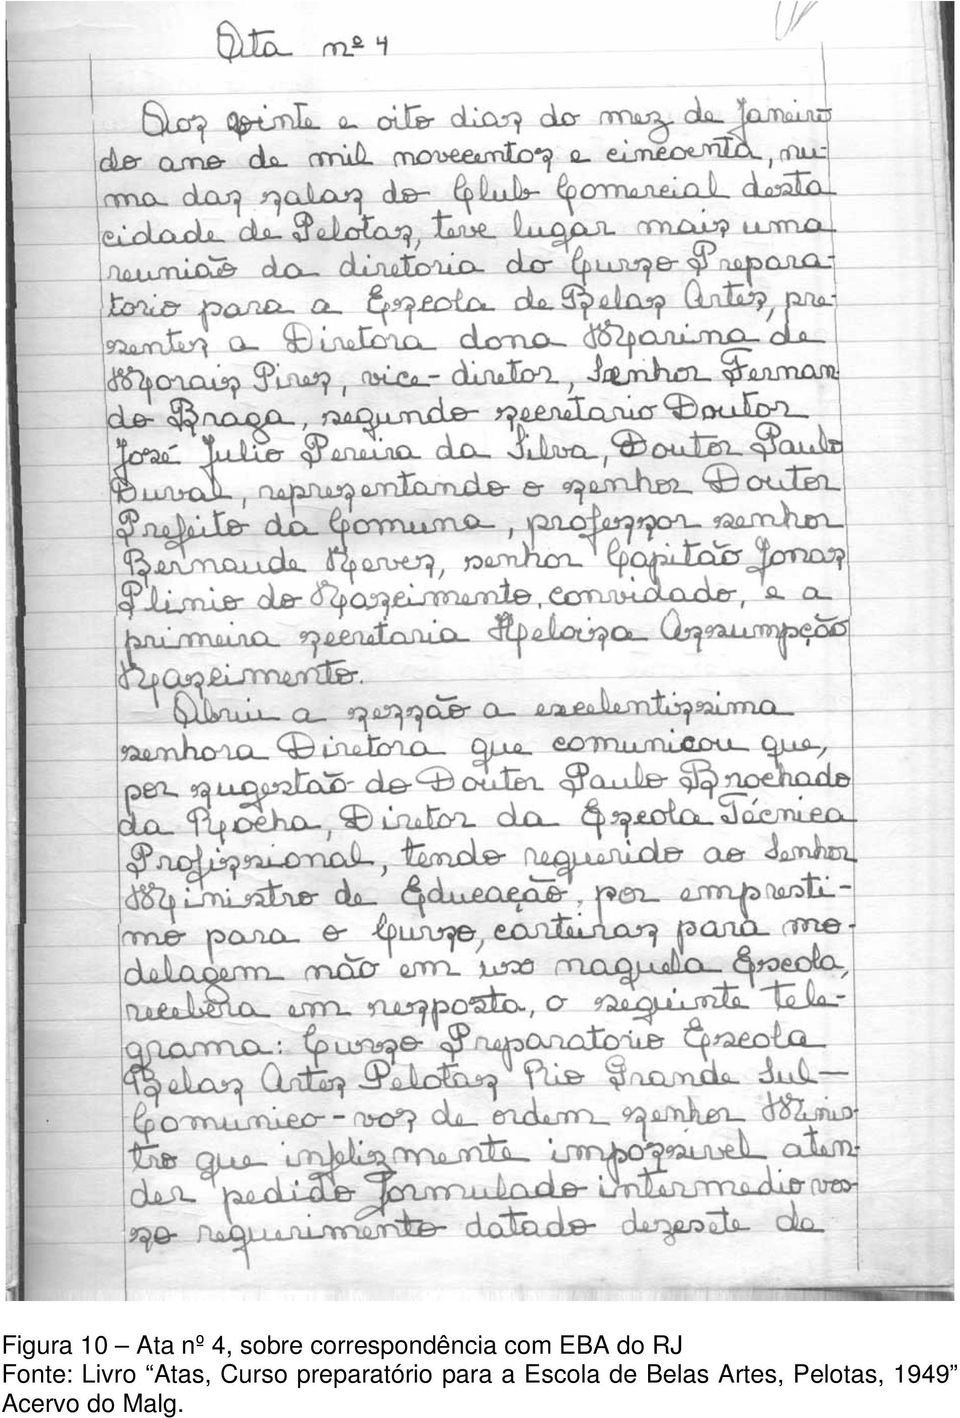 Ata nº 4
Aos vinte e oito dias do mez de Janeiro
do ano de mil novecentos e cincoenta, nu-
ma das salas do Club Comercial desta
cidade de Pelotas, teve lugar mais uma
reunião da diretoria do Curso Prepara-
torio para a Escola de Belas Artes, pre-
sentes a Diretora dona Marina de
Morais Pires, vice-diretor, Senhor Fernan
do Braga, segundo secretario Doutor
José Julio Pereira da Silva, Doutor Paulo
Duval, representando o senhor Doutor
Prefeito da Comuna, professor senhor
Bernaude Neves, senhor Capitão Jonas
Plinio do Nascimento, convidado, e a
primeira secretaria Heloisa Assumpção
Nascimento.
Abriu a sessão a excelentissima
senhora Diretora que comunicou que,
por sugestão do Doutor Paulo Brochado
da Rocha, Diretor da Escola Técnica
Profissional, tendo requerido ao Senhor
Ministro de Educação, por empresti-
mo para o Curso, carteiras para mo-
delagem não em uso naquela Escola,
recebêra em resposta, o seguinte tele-
grama: Curso Preparatorio Escola
Belas Artes Pelotas Rio Grande Sul—
Comunico-vos de ordem senhor Minis-
tro que infelismente impossivel aten-
der pedido formulado intermedio vos-
so requerimento datado dezesete de
Figura 10 – Ata nº 4, sobre correspondência com EBA do RJ
Fonte: Livro “Atas, Curso preparatório para a Escola de Belas Artes, Pelotas, 1949”
Acervo do Malg.